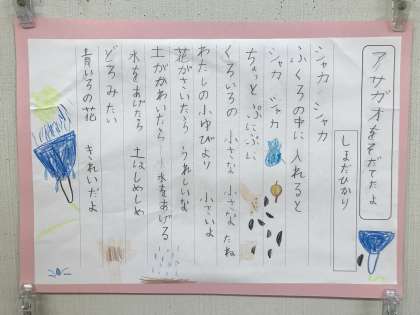 アサガオをそだてたよ
しまだひかり
シャカ シャカ
ふくろの中に 入れると
シャカ シャカ
ちょっと ぷにぷに
くろいろの 小さな 小さな たね
わたしの 小ゆびより 小さいよ
花がさいたら うれしいな
土がかわいたら 水をあげる
水をあげたら 土はしめしめ
どろみたい
青いろの花 きれいだよ